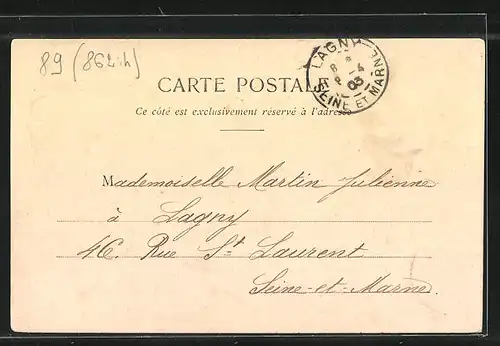 89 (862:h)
CARTE POSTALE
LAGNY
8 - 4
03
SEINE ET MARNE
Ce côté est exclusivement réservé à l'adresse
Mademoiselle Martin Julienne
à Lagny
46. Rue St Laurent
Seine-et-Marne.